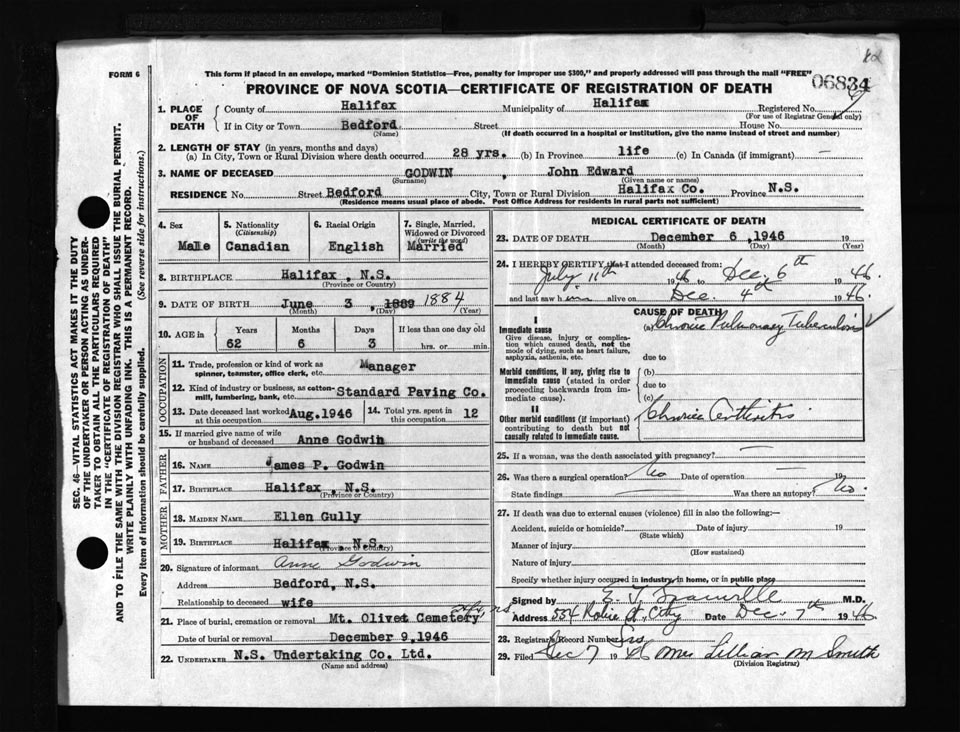 FORM 6
This form if placed in an envelope, marked "Dominion Statistics—Free, penalty for improper use $300," and properly addressed will pass through the mail "FREE"
06834
PROVINCE OF NOVA SCOTIA—CERTIFICATE OF REGISTRATION OF DEATH
SEC. 46—VITAL STATISTICS ACT MAKES IT THE DUTY
OF THE UNDERTAKER OR PERSON ACTING AS UNDER-
TAKER TO OBTAIN ALL THE PARTICULARS REQUIRED
IN THE "CERTIFICATE OF REGISTRATION OF DEATH"
AND TO FILE THE SAME WITH THE DIVISION REGISTRAR WHO SHALL ISSUE THE BURIAL PERMIT.
WRITE PLAINLY WITH UNFADING INK. THIS IS A PERMANENT RECORD.
Every item of information should be carefully supplied. (See reverse side for instructions.)
1. PLACE OF DEATH
County of Halifax Municipality of Halifax Registered No.
(For use of Registrar General only)
If in City or Town Bedford Street House No.
(Name) (If death occurred in a hospital or institution, give the name instead of street and number)
2. LENGTH OF STAY (in years, months and days)
(a) In City, Town or Rural Division where death occurred 28 yrs. (b) In Province life (c) In Canada (if immigrant) —
3. NAME OF DECEASED GODWIN , John Edward
(Surname) (Given name or names)
RESIDENCE No. Street Bedford City, Town or Rural Division Halifax Co. Province N.S.
(Residence means usual place of abode. Post Office Address for residents in rural parts not sufficient)
4. Sex
Male
5. Nationality
(Citizenship)
Canadian
6. Racial Origin
English
7. Single, Married,
Widowed or Divorced
(write the word)
Married
8. BIRTHPLACE Halifax , N.S.
(Province or Country)
9. DATE OF BIRTH June 3, 1889 1884
(Month) (Day) (Year)
10. AGE in
Years Months Days If less than one day old
62 6 3 hrs. or min.
OCCUPATION
11. Trade, profession or kind of work as Manager
spinner, teamster, office clerk, etc.
12. Kind of industry or business, as cotton-
mill, lumbering, bank, etc. Standard Paving Co.
13. Date deceased last worked
at this occupation Aug.1946
14. Total yrs. spent in
this occupation 12
15. If married give name of wife
or husband of deceased Anne Godwin
FATHER
16. NAME James P. Godwin
17. BIRTHPLACE Halifax , N.S.
(Province or Country)
MOTHER
18. MAIDEN NAME Ellen Gully
19. BIRTHPLACE Halifax , N.S.
(Province or Country)
20. Signature of informant Anne Godwin
Address Bedford, N.S.
Relationship to deceased wife
21. Place of burial, cremation or removal Mt. Olivet Cemetery
Date of burial or removal December 9,1946
22. UNDERTAKER N.S. Undertaking Co. Ltd.
(Name and address)
MEDICAL CERTIFICATE OF DEATH
23. DATE OF DEATH December 6 ,1946 19
(Month) (Day) (Year)
24. I HEREBY CERTIFY that I attended deceased from:
July 11th 1946 to Dec. 6th 1946.
and last saw him alive on Dec. 4th 1946.
CAUSE OF DEATH
I
Immediate cause
Give disease, injury or complica-
tion which caused death, not the
mode of dying, such as heart failure,
asphyxia, asthenia, etc.
(a) Chronic Pulmonary Tuberculosis
due to
Morbid conditions, if any, giving rise to
immediate cause (stated in order
proceeding backwards from im-
mediate cause).
(b)
due to
(c)
II
Other morbid conditions (if important)
contributing to death but not
causally related to immediate cause.
Chronic Arthritis
25. If a woman, was the death associated with pregnancy? —
26. Was there a surgical operation? No Date of operation — 19
State findings — Was there an autopsy? No.
27. If death was due to external causes (violence) fill in also the following:—
Accident, suicide or homicide? Date of injury 19
(State which)
Manner of injury
(How sustained)
Nature of injury
Specify whether injury occurred in industry, in home, or in public place
Signed by M.D.
Address 334 Robie St. City Date Dec. 7th 1946
28. Registrar's Record Number
29. Filed Dec 7 1946 Mrs Lillian M Smith
(Division Registrar)